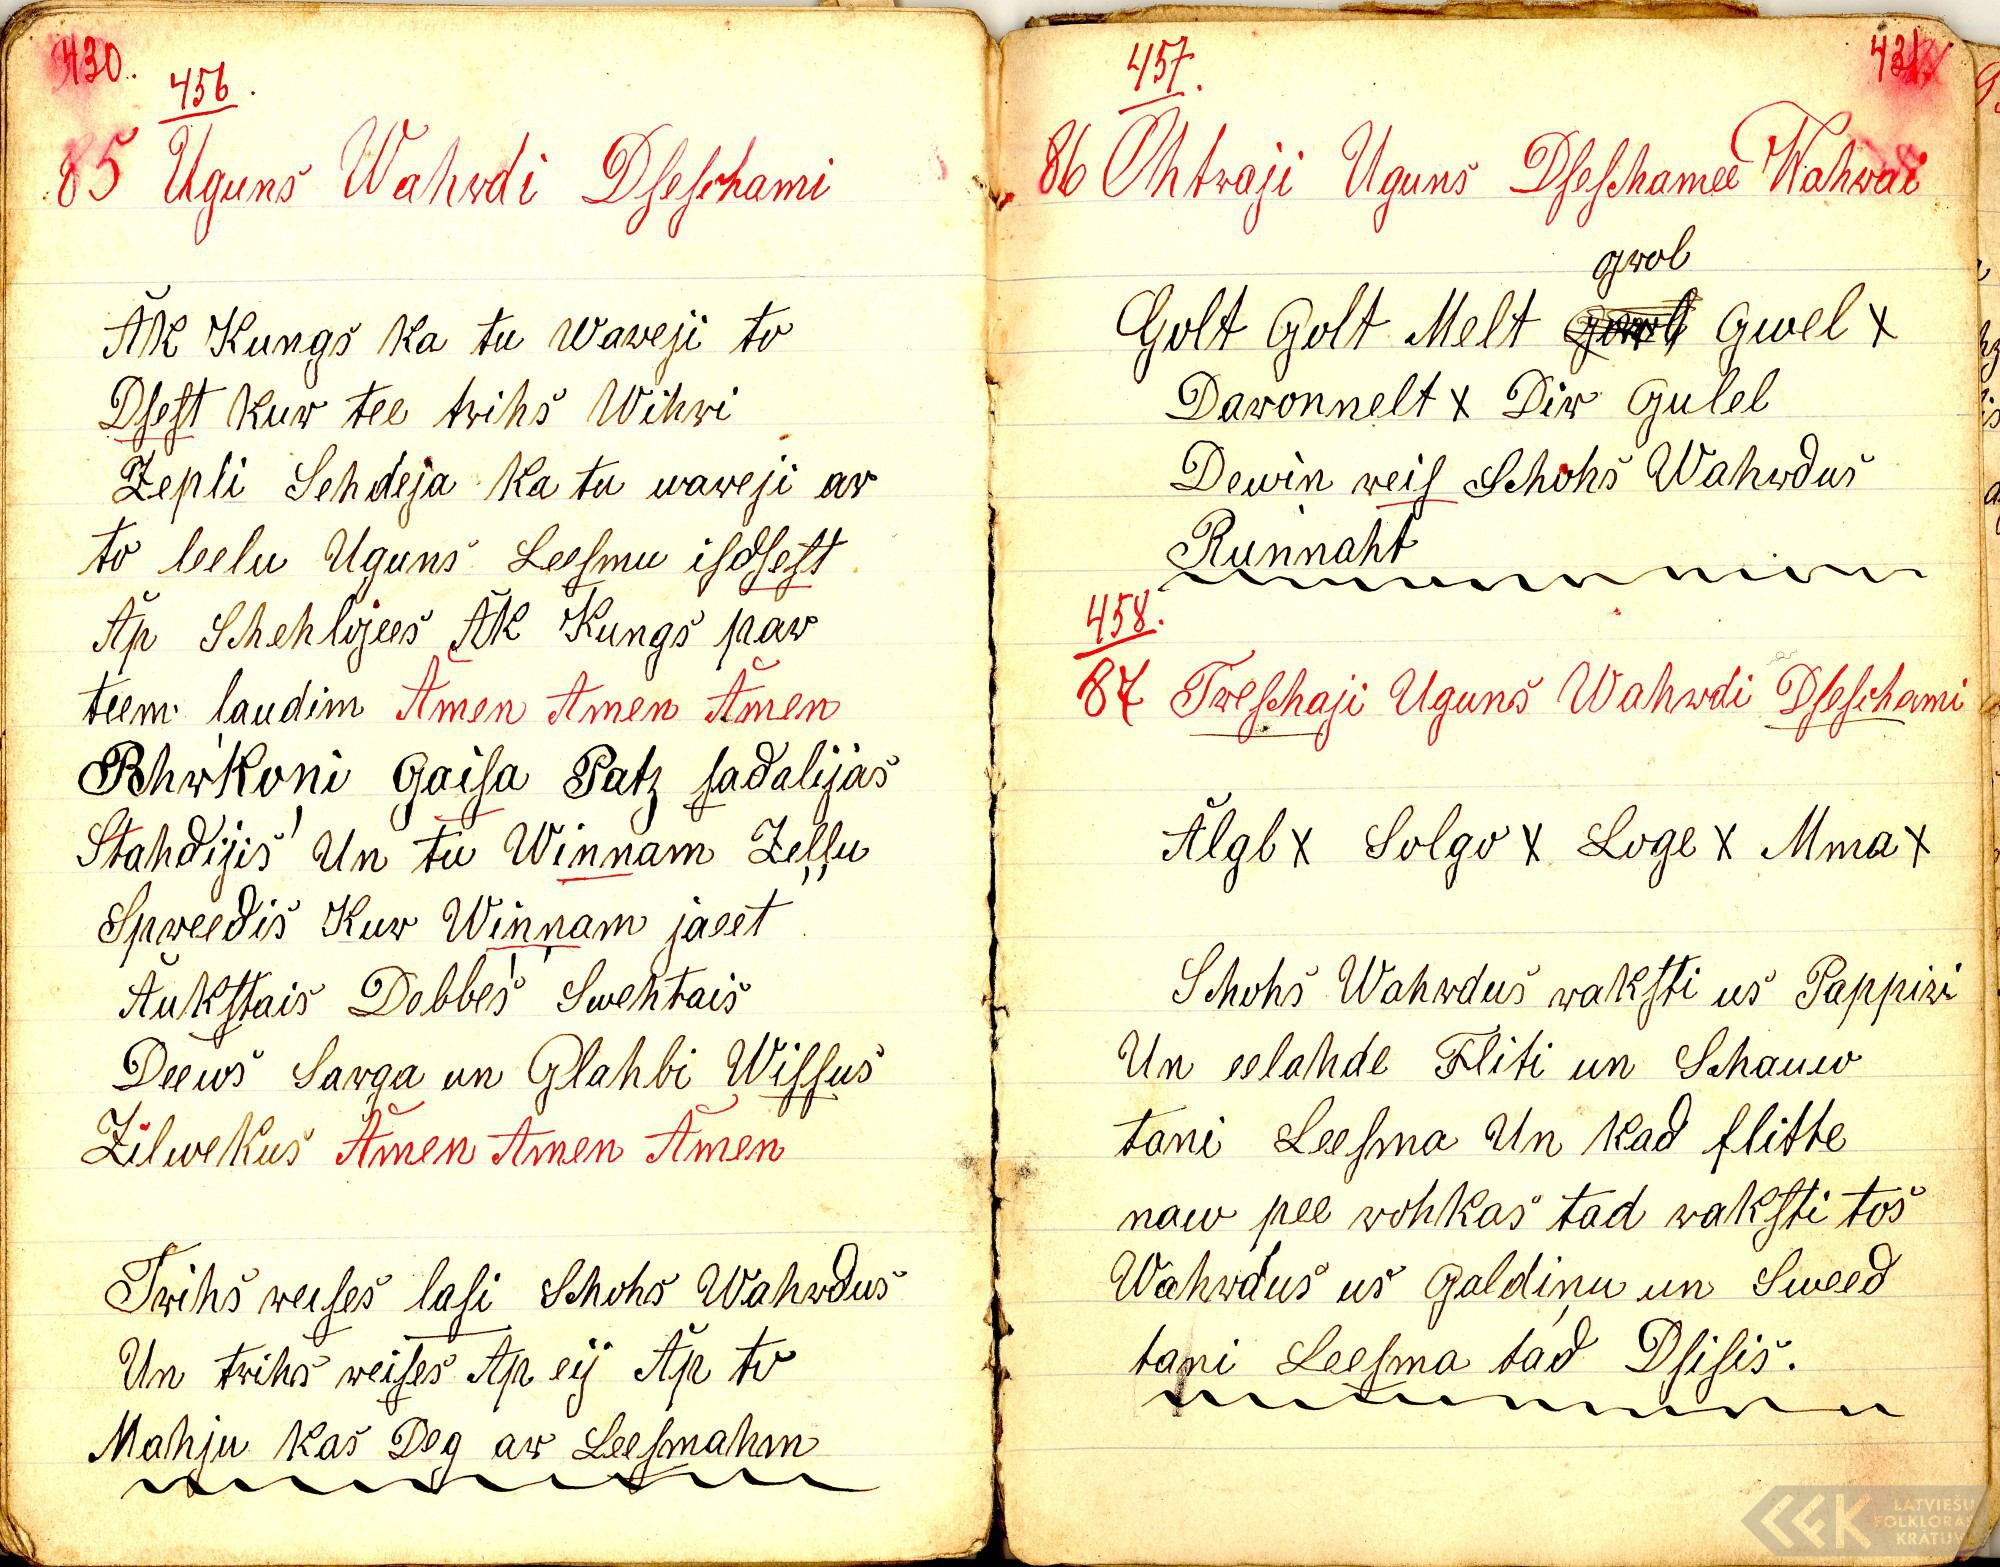 430.
456.
85 Uguns Wahrdi Dſeſchami
Ăk Kungs ka tu wareji to
Dſeſt kur tee trihs Wihri
Zepli Sehdeja ka tu wareji ar
to leelu Uguns Leeſmu iſdſeſt
Ăp Schehlojees Ăk Kungs par
teem laudim Ămen Amen Ămen
Pehrkoni Gaiſa Patz ſadalijas
Stahdijis Un tu Winnam Zeļļu
Spreedis Kur Winņam jaeet
Ăukſtais Debbes Swehtais
Deews Sarga un Glahbi Wiſſus
Zilwekus Ămen Amen Ămen
Trihs reiſes laſi Schohs Wahrdus
Un trihs reiſes Ap eij Ăp to
Mahju kas Deg ar Leeſmahm
431.
457.
86 Ohtraji Uguns Dſeſchamee Wahrdi
grol
Golt Golt Melt Gwel x
Daronnelt x Dir Gulel
Dewin reiſ Schohs Wahrdus
Runnaht
458.
87 Treſchaji Uguns Wahrdi Dſeſchami
Ălgl x Solgo x Loge x Mma x
Schohs Wahrdus rakſti us Pappiri
Un eelahde Fliti un Schauw
tani Leeſma Un kad flitte
naw pee rohkas tad rakſti tos
Wahrdus us Galdiņu un Sweed
tani Leeſma tad Dſiſis.
LATVIEŠU
FOLKLORAS
KRĀTUVE